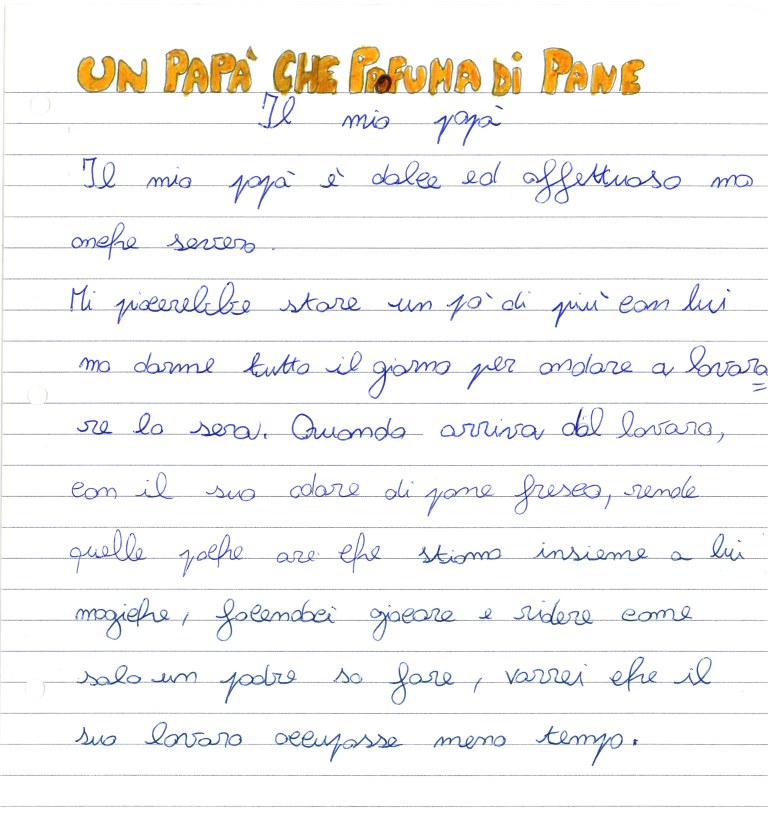 UN PAPÀ CHE PROFUMA DI PANE
Il mio papà
Il mio papà è dolce ed affettuoso ma
anche severo.
Mi piacerebbe stare un pò di più con lui
ma dorme tutto il giorno per andare a lavora
re la sera. Quando arriva dal lavoro,
con il suo odore di pane fresco, rende
quelle poche ore che stiamo insieme a lui
magiche, facendoci giocare e ridere come
solo un padre sa fare, vorrei che il
suo lavoro occupasse meno tempo.